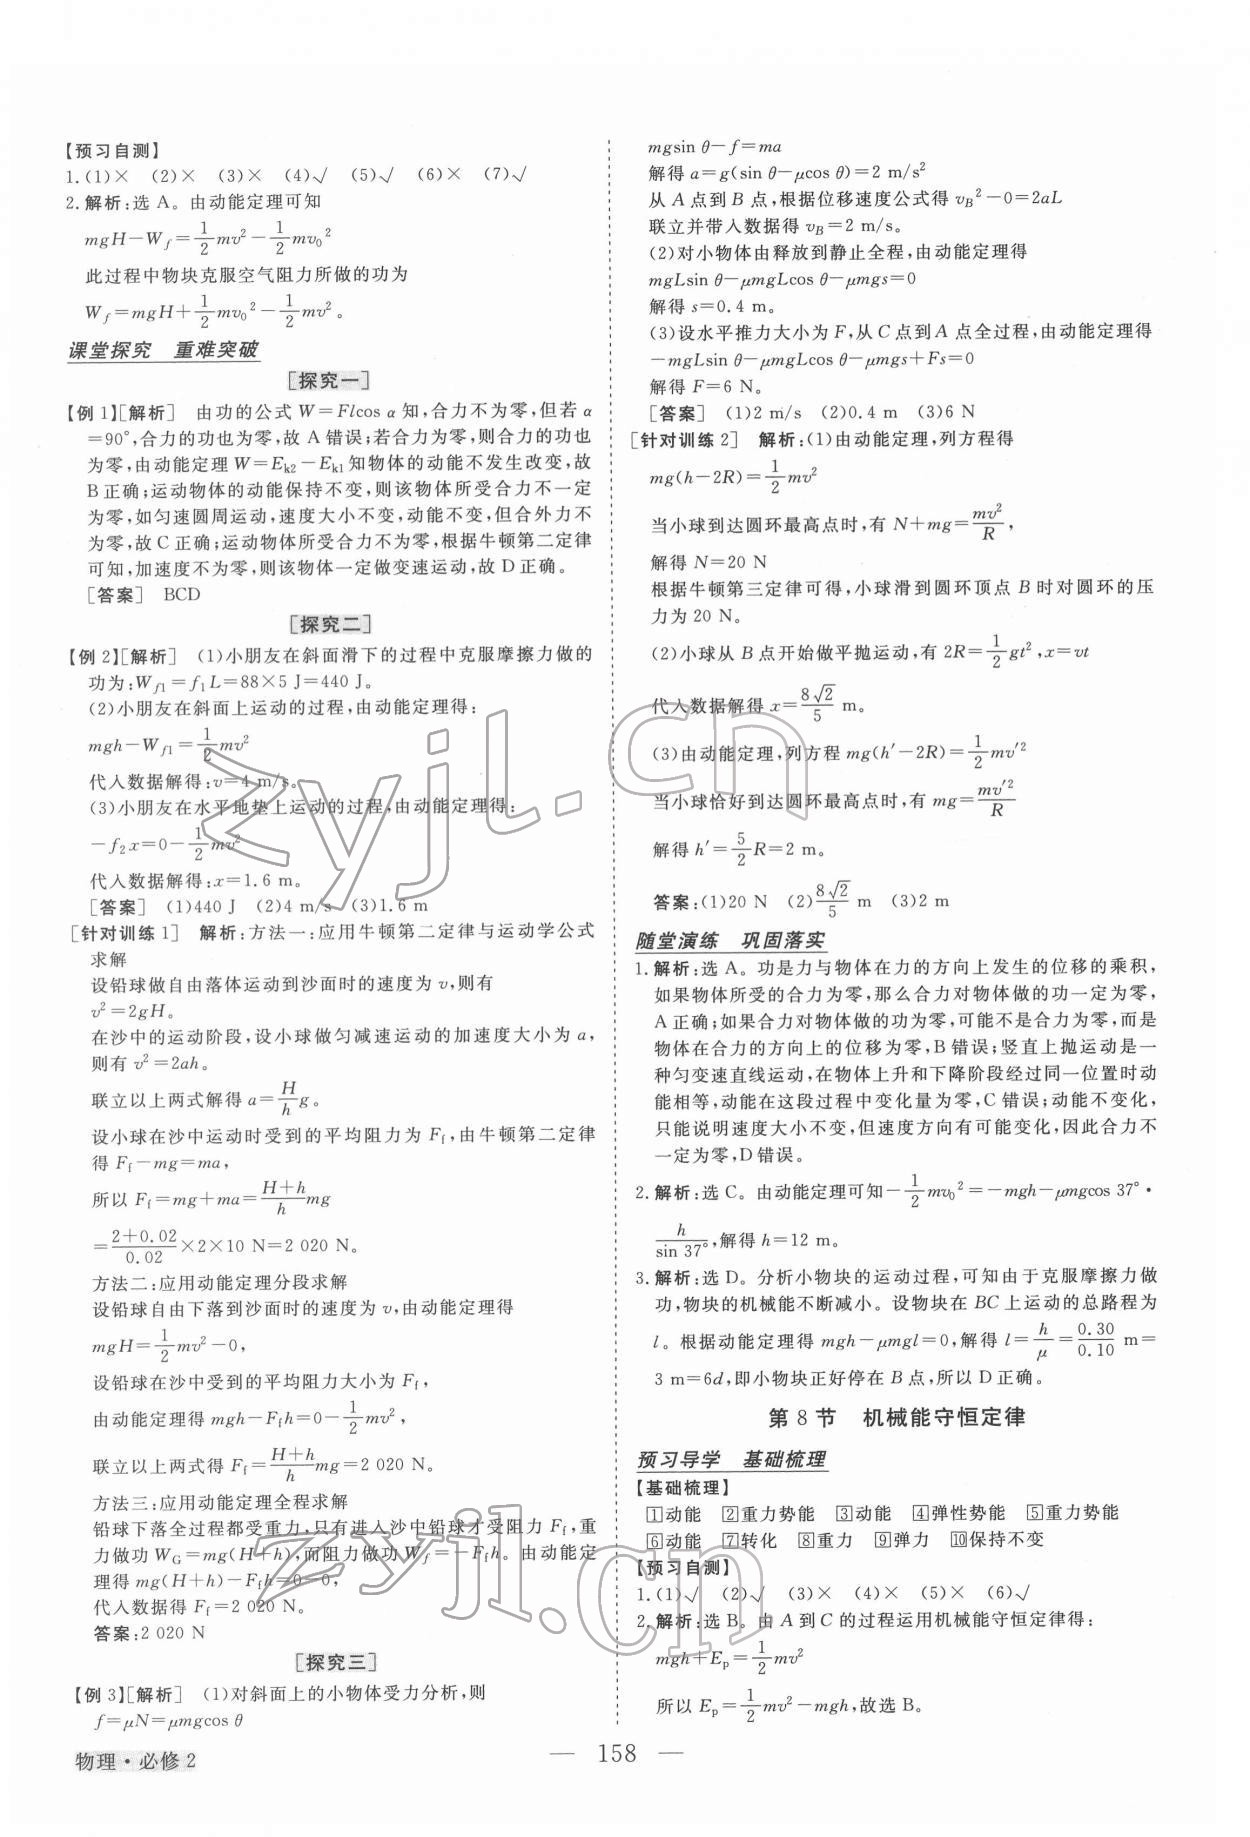 【预习自测】
1.(1)× (2)× (3)× (4)√ (5)√ (6)× (7)√
2.解析:选 A。由动能定理可知
mgH−W_f=\frac{1}{2}mv²−\frac{1}{2}mv₀²
此过程中物块克服空气阻力所做的功为
W_f=mgH+\frac{1}{2}mv₀²−\frac{1}{2}mv²。
课堂探究 重难突破
[探究一]
【例 1】[解析] 由功的公式 W=Flcos α 知,合力不为零,但若 α
=90°,合力的功也为零,故 A 错误;若合力为零,则合力的功也
为零,由动能定理 W=E_{k2}−E_{k1}知物体的动能不发生改变,故
B 正确;运动物体的动能保持不变,则该物体所受合力不一定
为零,如匀速圆周运动,速度大小不变,动能不变,但合外力不
为零,故 C 正确;运动物体所受合力不为零,根据牛顿第二定律
可知,加速度不为零,则该物体一定做变速运动,故 D 正确。
[答案] BCD
[探究二]
【例 2】[解析] (1)小朋友在斜面滑下的过程中克服摩擦力做的
功为:W_{f1}=f₁L=88×5 J=440 J。
(2)小朋友在斜面上运动的过程,由动能定理得:
mgh−W_{f1}=\frac{1}{2}mv²
代入数据解得:v=4 m/s。
(3)小朋友在水平地垫上运动的过程,由动能定理得:
−f₂x=0−\frac{1}{2}mv²
代入数据解得:x=1.6 m。
[答案] (1)440 J (2)4 m/s (3)1.6 m
[针对训练 1] 解析:方法一:应用牛顿第二定律与运动学公式
求解
设铅球做自由落体运动到沙面时的速度为 v,则有
v²=2gH。
在沙中的运动阶段,设小球做匀减速运动的加速度大小为 a,
则有 v²=2ah。
联立以上两式解得 a=\frac{H}{h}g。
设小球在沙中运动时受到的平均阻力为 F_f,由牛顿第二定律
得 F_f−mg=ma,
所以 F_f=mg+ma=\frac{H+h}{h}mg
=\frac{2+0.02}{0.02}×2×10 N=2 020 N。
方法二:应用动能定理分段求解
设铅球自由下落到沙面时的速度为 v,由动能定理得
mgH=\frac{1}{2}mv²−0,
设铅球在沙中受到的平均阻力大小为 F_f,
由动能定理得 mgh−F_fh=0−\frac{1}{2}mv²,
联立以上两式得 F_f=\frac{H+h}{h}mg=2 020 N。
方法三:应用动能定理全程求解
铅球下落全过程都受重力,只有进入沙中铅球才受阻力 F_f,重
力做功 W_G=mg(H+h),而阻力做功 W_f=−F_fh。由动能定
理得 mg(H+h)−F_fh=0−0,
代入数据得 F_f=2 020 N。
答案:2 020 N
[探究三]
【例 3】[解析] (1)对斜面上的小物体受力分析,则
f=μN=μmgcos θ
mgsin θ−f=ma
解得 a=g(sin θ−μcos θ)=2 m/s²
从 A 点到 B 点,根据位移速度公式得 v_B²−0=2aL
联立并带入数据得 v_B=2 m/s。
(2)对小物体由释放到静止全程,由动能定理得
mgLsin θ−μmgLcos θ−μmgs=0
解得 s=0.4 m。
(3)设水平推力大小为 F,从 C 点到 A 点全过程,由动能定理得
−mgLsin θ−μmgLcos θ−μmgs+Fs=0
解得 F=6 N。
[答案] (1)2 m/s (2)0.4 m (3)6 N
[针对训练 2] 解析:(1)由动能定理,列方程得
mg(h−2R)=\frac{1}{2}mv²
当小球到达圆环最高点时,有 N+mg=\frac{mv²}{R},
解得 N=20 N
根据牛顿第三定律可得,小球滑到圆环顶点 B 时对圆环的压
力为 20 N。
(2)小球从 B 点开始做平抛运动,有 2R=\frac{1}{2}gt²,x=vt
代入数据解得 x=\frac{8√2}{5} m。
(3)由动能定理,列方程 mg(h′−2R)=\frac{1}{2}mv′²
当小球恰好到达圆环最高点时,有 mg=\frac{mv′²}{R}
解得 h′=\frac{5}{2}R=2 m。
答案:(1)20 N (2)\frac{8√2}{5} m (3)2 m
随堂演练 巩固落实
1.解析:选 A。功是力与物体在力的方向上发生的位移的乘积,
如果物体所受的合力为零,那么合力对物体做的功一定为零,
A 正确;如果合力对物体做的功为零,可能不是合力为零,而是
物体在合力的方向上的位移为零,B 错误;竖直上抛运动是一
种匀变速直线运动,在物体上升和下降阶段经过同一位置时动
能相等,动能在这段过程中变化量为零,C 错误;动能不变化,
只能说明速度大小不变,但速度方向有可能变化,因此合力不
一定为零,D 错误。
2.解析:选 C。由动能定理可知−\frac{1}{2}mv₀²=−mgh−μmgcos 37°·
\frac{h}{sin 37°},解得 h=12 m。
3.解析:选 D。分析小物块的运动过程,可知由于克服摩擦力做
功,物块的机械能不断减小。设物块在 BC 上运动的总路程为
l。根据动能定理得 mgh−μmgl=0,解得 l=\frac{h}{μ}=\frac{0.30}{0.10} m=
3 m=6d,即小物块正好停在 B 点,所以 D 正确。
第 8 节 机械能守恒定律
预习导学 基础梳理
【基础梳理】
1动能 2重力势能 3动能 4弹性势能 5重力势能
6动能 7转化 8重力 9弹力 10保持不变
【预习自测】
1.(1)√ (2)√ (3)× (4)× (5)× (6)√
2.解析:选 B。由 A 到 C 的过程运用机械能守恒定律得:
mgh+E_p=\frac{1}{2}mv²
所以 E_p=\frac{1}{2}mv²−mgh,故选 B。
物理·必修 2
— 158 —
zyjl.cn
zyjl.cn